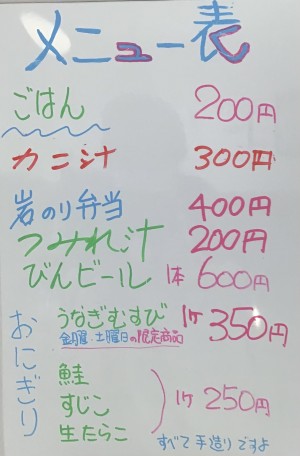 メニュー表
ごはん 200円
カニ汁 300円
岩のり弁当 400円
つみれ汁 200円
びんビール 1本 600円
おにぎり
うなぎむすび 1ケ 350円
金曜・土曜日の限定商品
鮭
すじこ 1ケ 250円
生たらこ
すべて手造りですよ